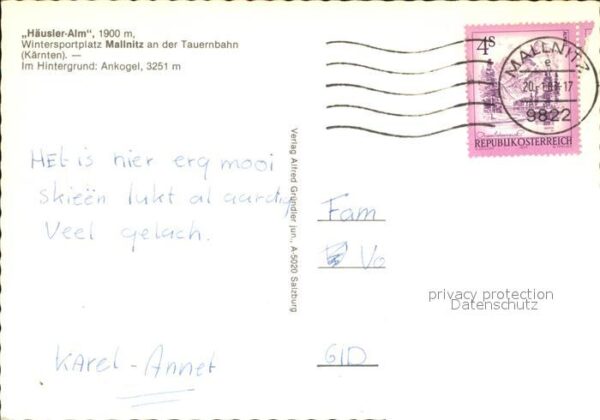 „Häusler-Alm", 1900 m,
Wintersportplatz Mallnitz an der Tauernbahn
(Kärnten). —
Im Hintergrund: Ankogel, 3251 m
4 S
REPUBLIK ÖSTERREICH
MALLNITZ
e
9822
Het is hier erg mooi
Skieën lukt al aardig
Veel gelach.
Karel-Annet
Verlag Alfred Gründler jun., A-5020 Salzburg
Fam
Vo
GID
privacy protection
Datenschutz